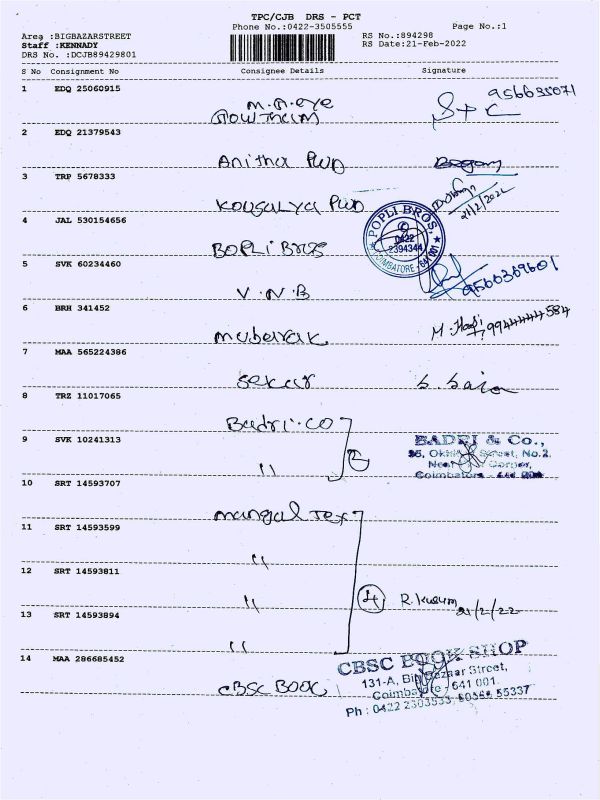 TPC/CJB DRS - PCT
Phone No.:0422-3505555 Page No.:1
Area :BIGBAZARSTREET RS No.:894298
Staff :KENNADY RS Date:21-Feb-2022
DRS No. :DCJB89429801
S No Consignment No Consignee Details Signature
1 EDQ 25060915
M.N.eye
Gowtham
2 EDQ 21379543
Anitha PWD
3 TRP 5678333
Kousalya PWD 21/2/2022
POPLI BROS.
0422
2394344
COIMBATORE - 641 001
4 JAL 530154656
BOPLi Bros
5 SVK 60234460
V.N.B
6 BRH 341452
mubarak
7 MAA 565224386
Sekar
8 TRZ 11017065
Badri.co
9 SVK 10241313
"
BADRI & Co.,
Street, No.2
Coimbatore
10 SRT 14593707
mangal Tex
11 SRT 14593599
"
12 SRT 14593811
" 4 R.Kusum 21/2/22
13 SRT 14593894
"
14 MAA 286685452
CBSC BOOK
CBSC BOOK SHOP
131-A, Big Bazaar Street,
Coimbatore - 641 001.
Ph : 0422 2303533, 55337